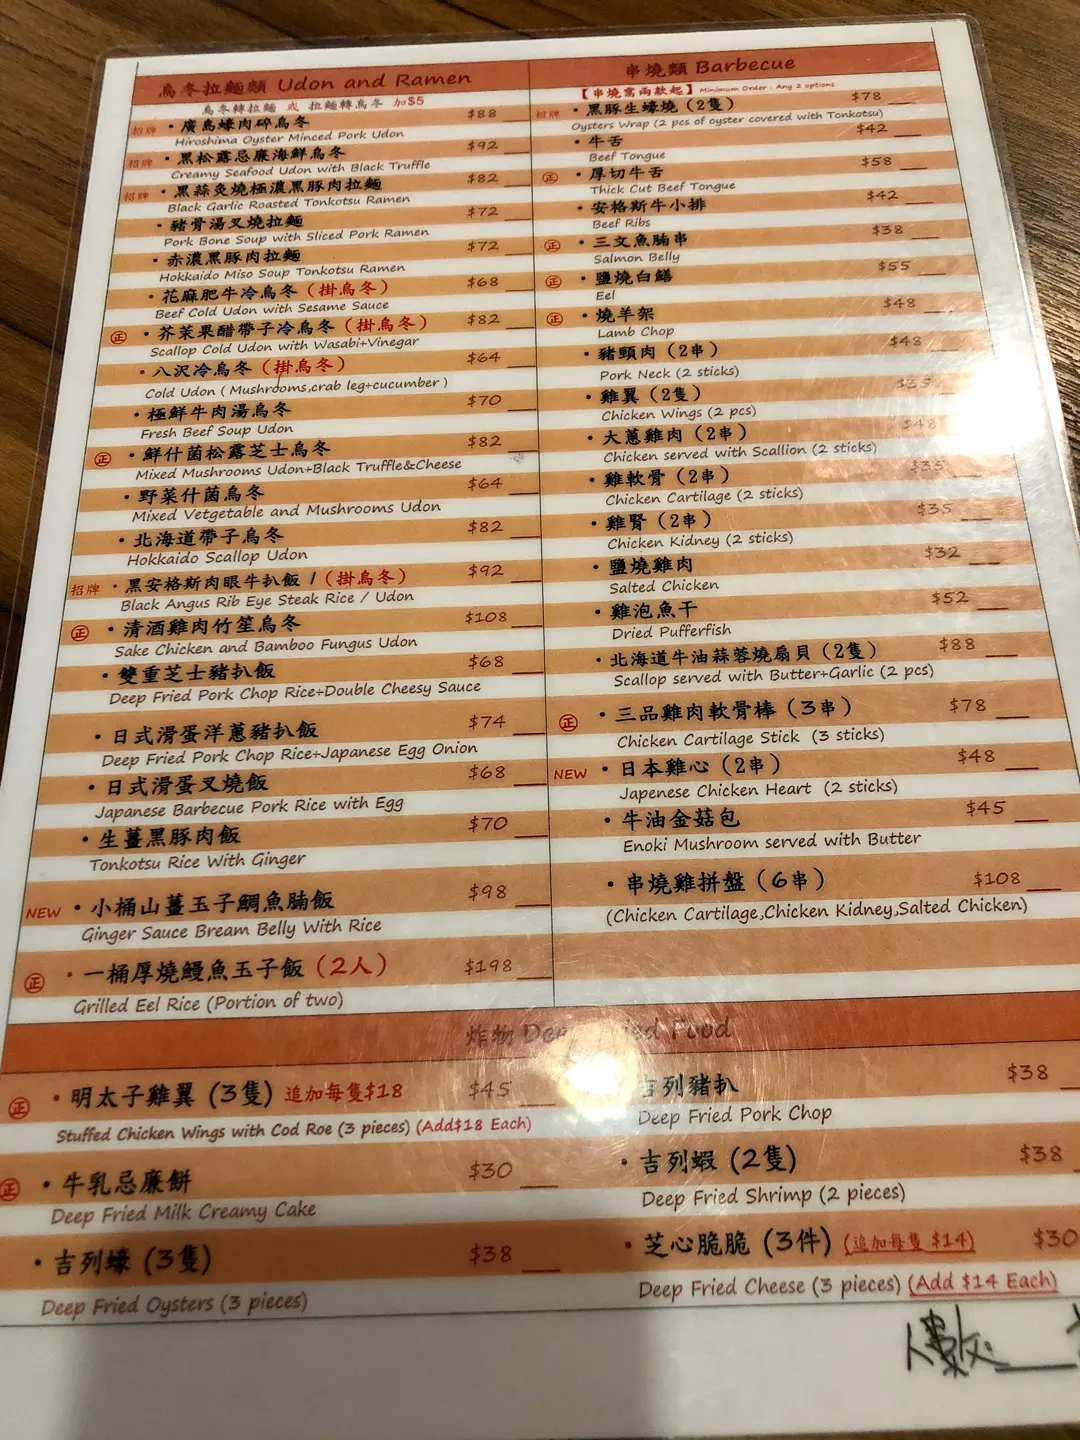 烏冬拉麵類 Udon and Ramen
烏冬轉拉麵 或 拉麵轉烏冬 加$5
招牌 • 廣島蠔肉碎烏冬 $88
Hiroshima Oyster Minced Pork Udon
招牌 • 黑松露忌廉海鮮烏冬 $92
Creamy Seafood Udon with Black Truffle
招牌 • 黑蒜灸燒極濃黑豚肉拉麵 $82
Black Garlic Roasted Tonkotsu Ramen
• 豬骨湯叉燒拉麵 $72
Pork Bone Soup with Sliced Pork Ramen
• 赤濃黑豚肉拉麵 $72
Hokkaido Miso Soup Tonkotsu Ramen
• 花麻肥牛冷烏冬（掛烏冬） $68
Beef Cold Udon with Sesame Sauce
正 • 芥茉果醋帶子冷烏冬（掛烏冬） $82
Scallop Cold Udon with Wasabi+Vinegar
• 八沢冷烏冬（掛烏冬） $64
Cold Udon ( Mushrooms,crab leg+cucumber )
• 極鮮牛肉湯烏冬 $70
Fresh Beef Soup Udon
正 • 鮮什菌松露芝士烏冬 $82
Mixed Mushrooms Udon+Black Truffle&Cheese
• 野菜什菌烏冬 $64
Mixed Vetgetable and Mushrooms Udon
• 北海道帶子烏冬 $82
Hokkaido Scallop Udon
招牌 • 黑安格斯肉眼牛扒飯 /（掛烏冬） $92
Black Angus Rib Eye Steak Rice / Udon
正 • 清酒雞肉竹笙烏冬 $108
Sake Chicken and Bamboo Fungus Udon
• 雙重芝士豬扒飯 $68
Deep Fried Pork Chop Rice+Double Cheesy Sauce
• 日式滑蛋洋蔥豬扒飯 $74
Deep Fried Pork Chop Rice+Japanese Egg Onion
• 日式滑蛋叉燒飯 $68
Japanese Barbecue Pork Rice with Egg
• 生薑黑豚肉飯 $70
Tonkotsu Rice With Ginger
NEW • 小桶山薑玉子鯛魚腩飯 $98
Ginger Sauce Bream Belly With Rice
正 • 一桶厚燒鰻魚玉子飯（2人） $198
Grilled Eel Rice (Portion of two)
串燒類 Barbecue
【串燒需兩款起】 Minimum Order : Any 2 options
招牌 • 黑豚生蠔燒（2隻） $78
Oysters Wrap (2 pcs of oyster covered with Tonkotsu)
• 牛舌 $42
Beef Tongue
正 • 厚切牛舌 $58
Thick Cut Beef Tongue
• 安格斯牛小排 $42
Beef Ribs
正 • 三文魚腩串 $38
Salmon Belly
正 • 鹽燒白鱔 $55
Eel
正 • 燒羊架 $48
Lamb Chop
• 豬頸肉（2串） $48
Pork Neck (2 sticks)
• 雞翼（2隻） $35
Chicken Wings (2 pcs)
• 大蔥雞肉（2串） $48
Chicken served with Scallion (2 sticks)
• 雞軟骨（2串） $35
Chicken Cartilage (2 sticks)
• 雞腎（2串） $35
Chicken Kidney (2 sticks)
• 鹽燒雞肉 $32
Salted Chicken
• 雞泡魚干 $52
Dried Pufferfish
• 北海道牛油蒜蓉燒扇貝（2隻） $88
Scallop served with Butter+Garlic (2 pcs)
正 • 三品雞肉軟骨棒（3串） $78
Chicken Cartilage Stick (3 sticks)
NEW • 日本雞心（2串） $48
Japenese Chicken Heart (2 sticks)
• 牛油金菇包 $45
Enoki Mushroom served with Butter
• 串燒雞拼盤（6串） $108
(Chicken Cartilage,Chicken Kidney,Salted Chicken)
炸物 Deep Fried Food
正 • 明太子雞翼 (3隻) 追加每隻$18 $45
Stuffed Chicken Wings with Cod Roe (3 pieces) (Add$18 Each)
正 • 牛乳忌廉餅 $30
Deep Fried Milk Creamy Cake
• 吉列蠔 (3隻) $38
Deep Fried Oysters (3 pieces)
吉列豬扒 $38
Deep Fried Pork Chop
• 吉列蝦 (2隻) $38
Deep Fried Shrimp (2 pieces)
• 芝心脆脆 (3件) (追加每隻 $14) $30
Deep Fried Cheese (3 pieces) (Add $14 Each)
人數: